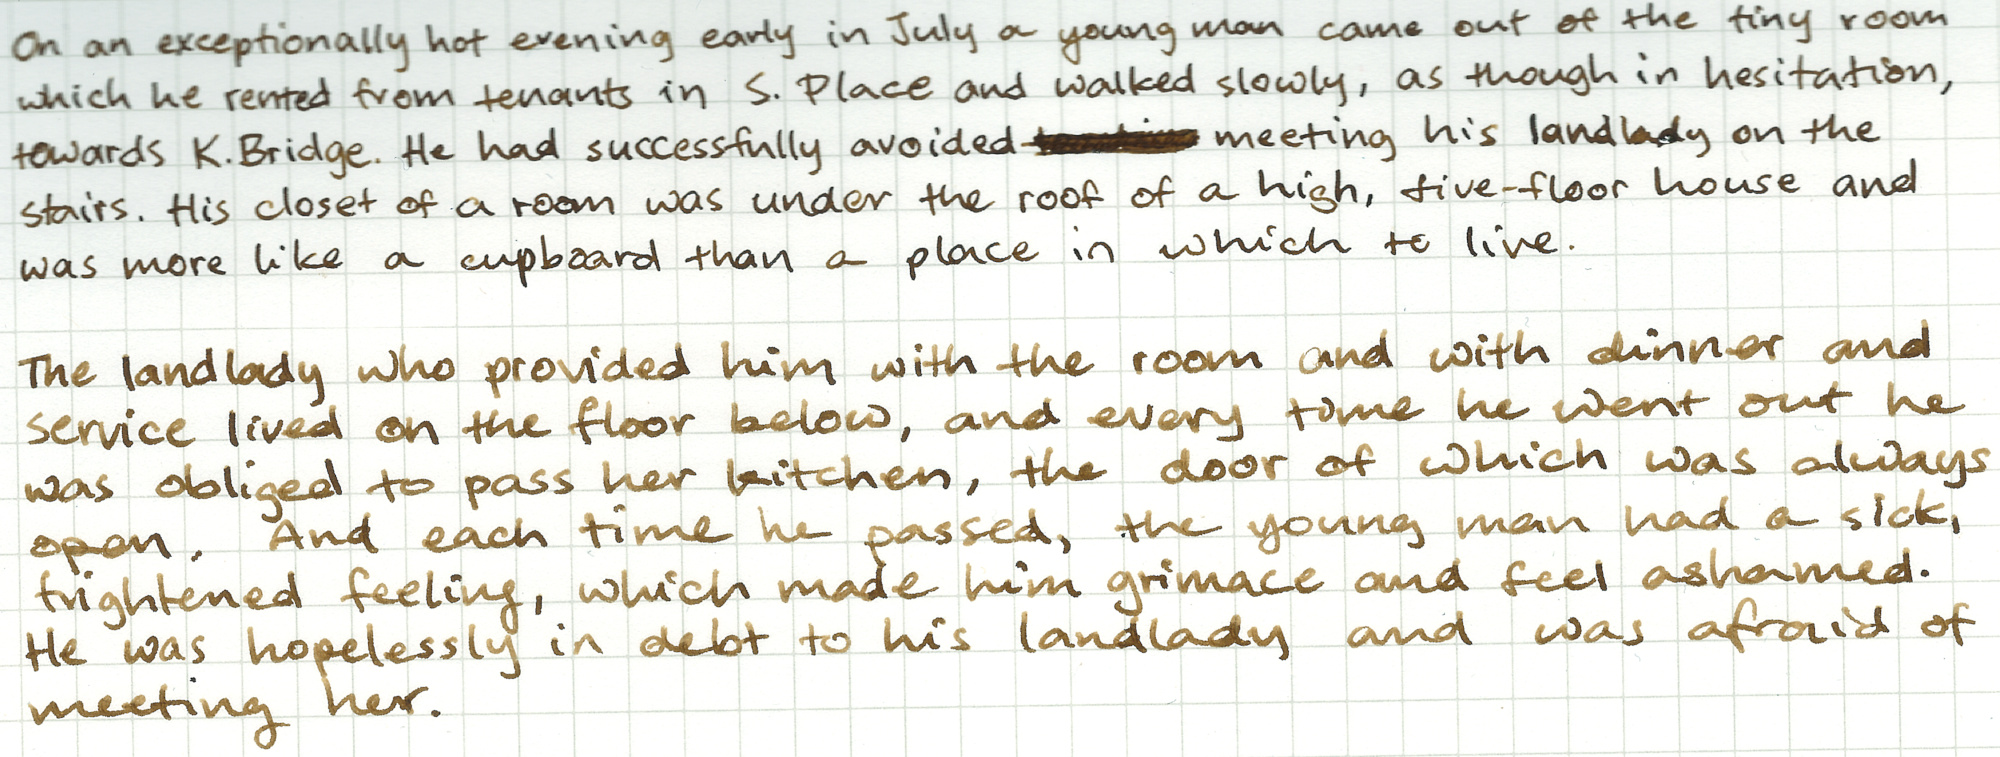 On an exceptionally hot evening early in July a young man came out of the tiny room
which he rented from tenants in S. Place and walked slowly, as though in hesitation,
towards K. Bridge. He had successfully avoided meeting his landlady on the
stairs. His closet of a room was under the roof of a high, five-floor house and
was more like a cupboard than a place in which to live.
The landlady who provided him with the room and with dinner and
service lived on the floor below, and every time he went out he
was obliged to pass her kitchen, the door of which was always
open. And each time he passed, the young man had a sick,
frightened feeling, which made him grimace and feel ashamed.
He was hopelessly in debt to his landlady and was afraid of
meeting her.